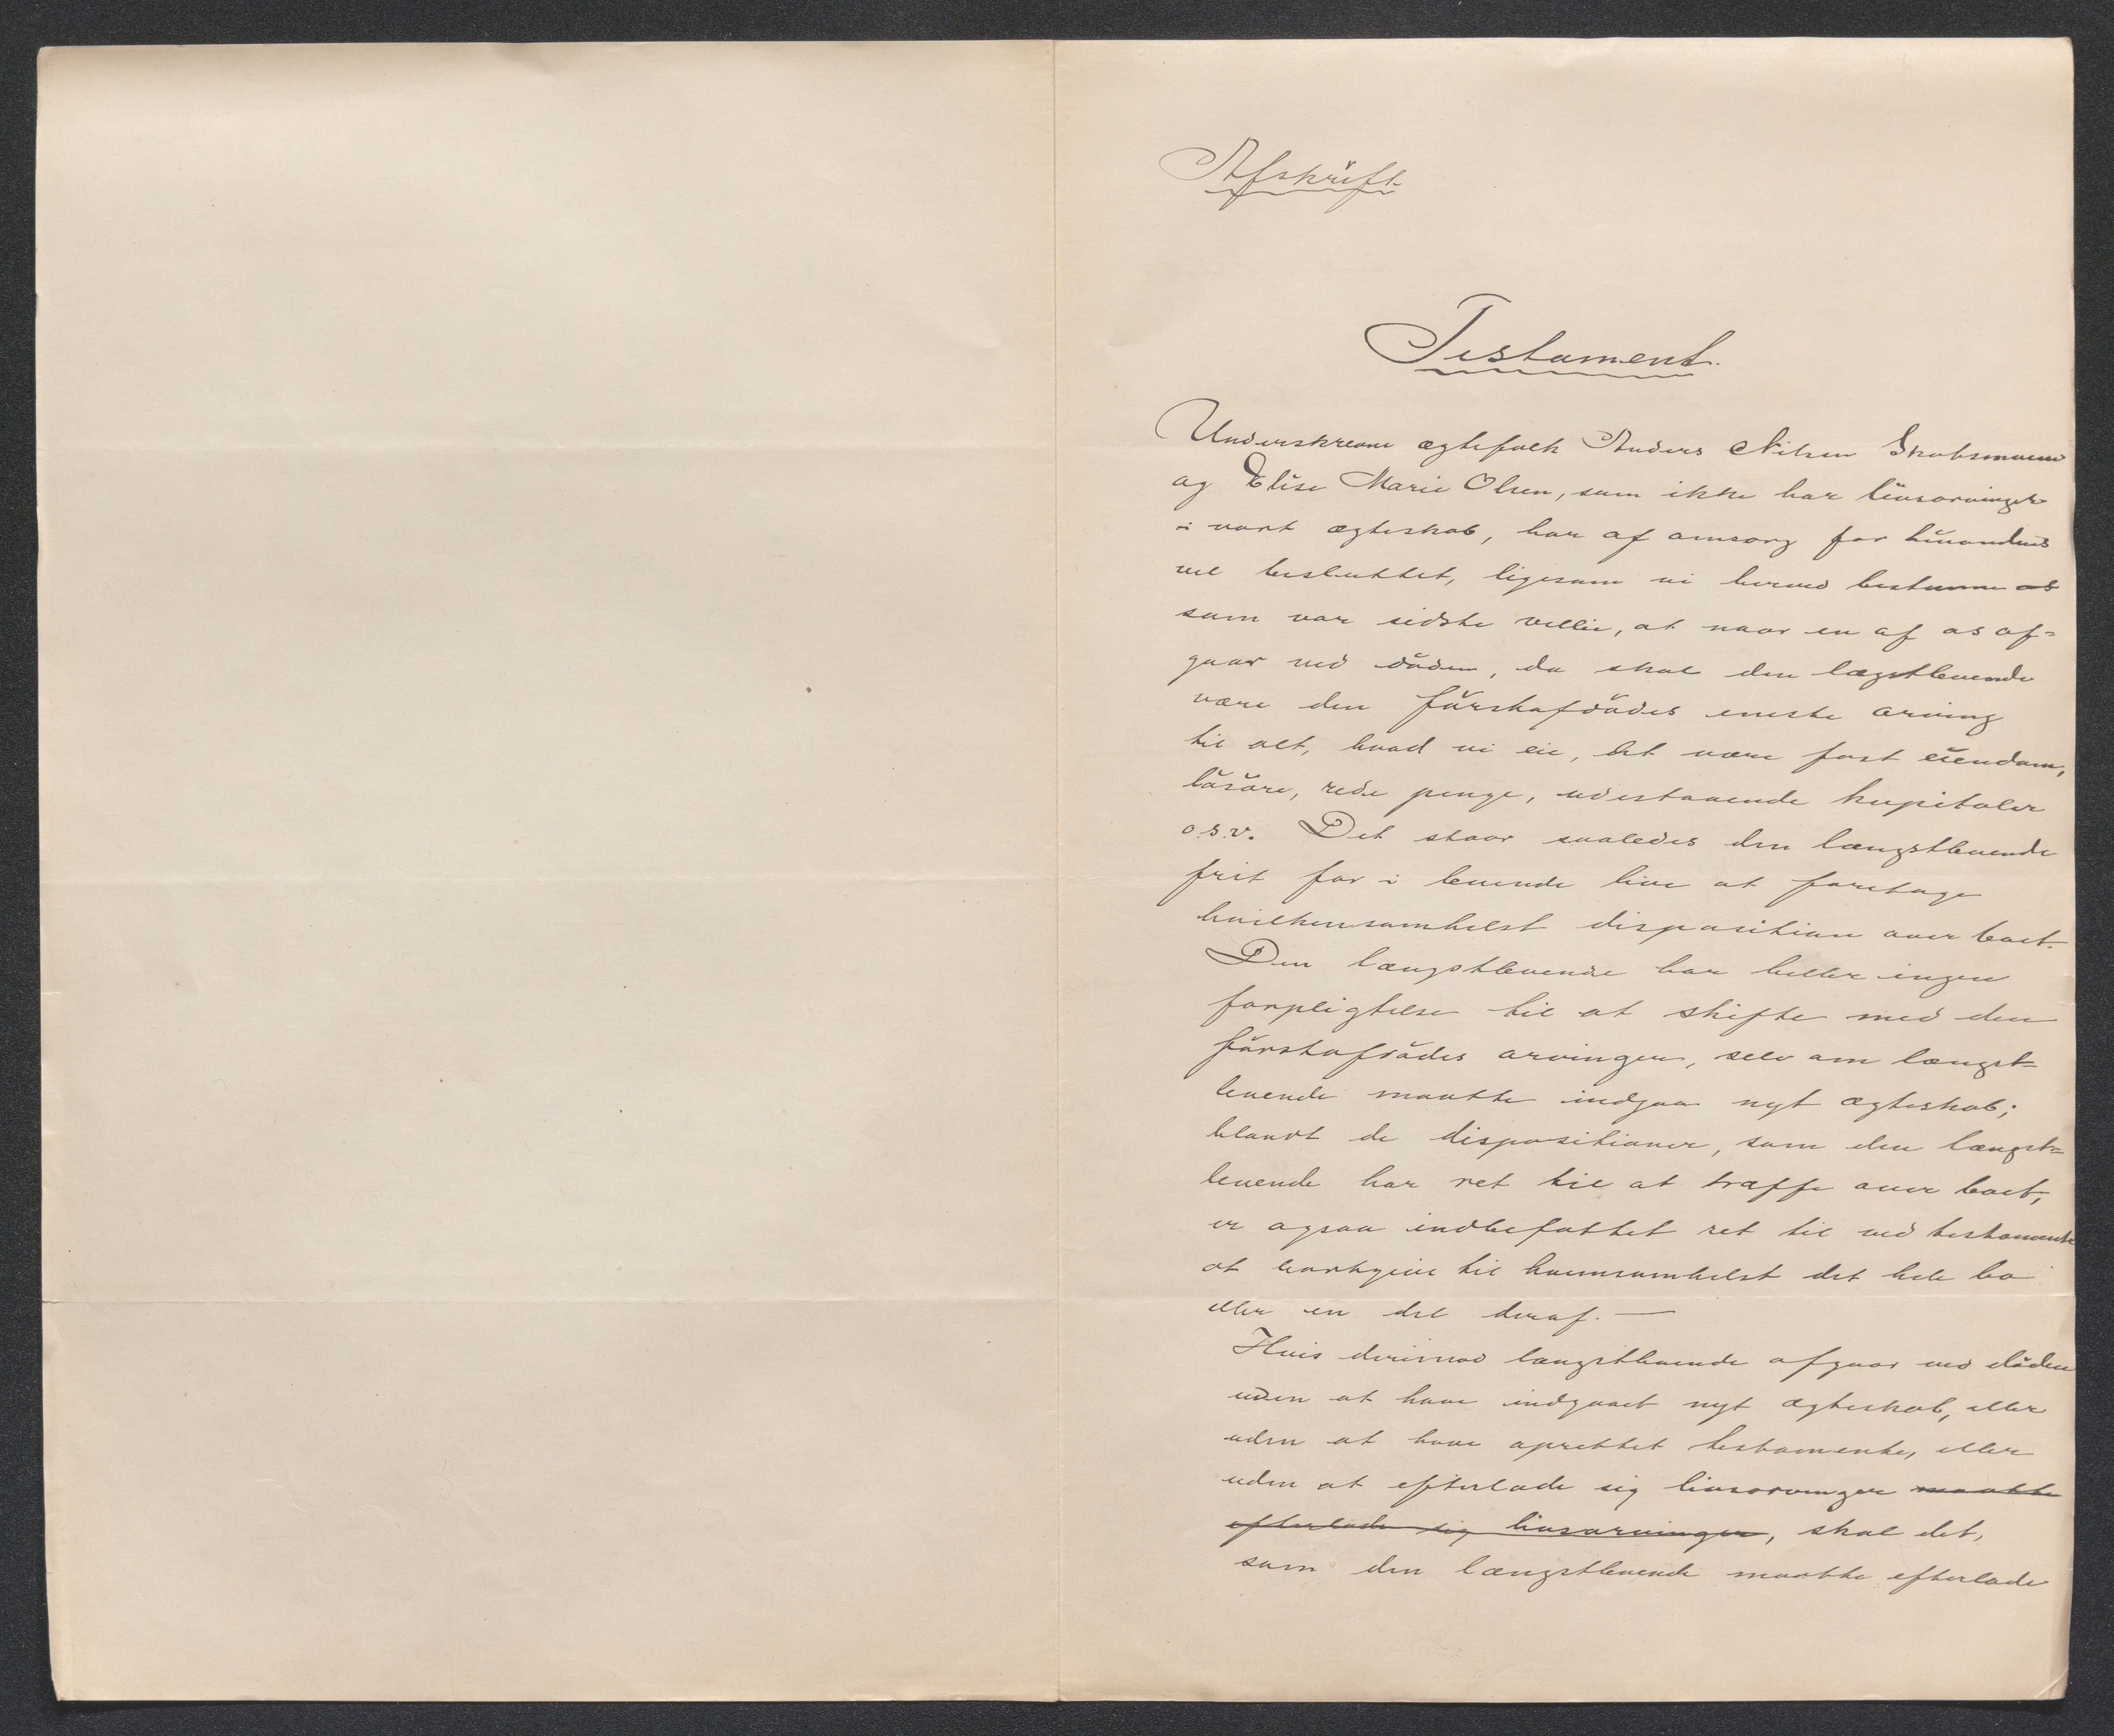 Afskrift
Testament.
Underskrevne ægtefolk Anders Nilsen Skabsmoen
og Elise Marie Olsen, som ikke har livsarvinger
i vort ægteskab, har af omsorg for hinandens
vel besluttet, ligesom vi herved bestemme os
som vor sidste villie, at naar en af os af=
gaar ved döden, da skal den lægstlevende
være den förstafdödes eneste arving
til alt, hvad vi eie, det være fast eiendom,
lösöre, rede penge, udestaaende kapitaler
o.s.v. Det staar saaledes den længstlevende
frit for i levende live at foretage
hvilkensomhelst disposition over boet.
Den længstlevende har heller ingen
forpligtelse til at skifte med den
förstafdödes arvinger, selv om længst=
levende maatte indgaa nyt ægteskab;
blandt de dispositioner, som den længst=
levende har ret til at træffe over boet,
er ogsaa indbefattet ret til ved testamente
at bortgive til hvemsomhelst det hele bo
eller en del deraf. —
Hvis derimod længstlevende afgaar ved döden
uden at have indgaaet nyt ægteskab, eller
uden at have oprettet testamente, eller
uden at efterlade sig livsarvinger maatte
efterlade sig livsarvinger, skal det,
som den længstlevende maatte efterlade